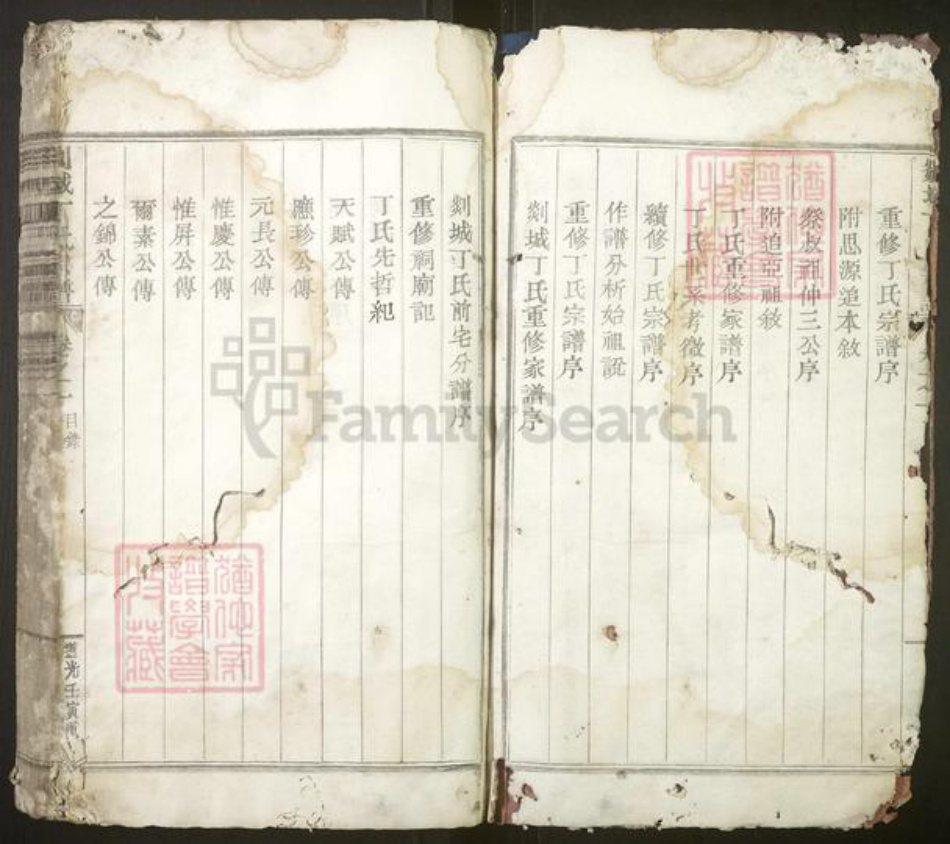 重修丁氏宗譜序
附思源追本敘
祭叔祖仲三公序
附追亞祖敘
丁氏重修家譜序
丁氏世系考徵序
續修丁氏宗譜序
作譜分析始祖說
重修丁氏宗譜序
剡城丁氏重修家譜序
剡城丁氏前宅分譜序
重修祠廟記
丁氏先哲紀
天賦公傳
應珍公傳
元長公傳
惟慶公傳
惟屏公傳
爾素公傳
之錦公傳
目錄
道光壬寅重
譜學會
收藏
FamilySearch